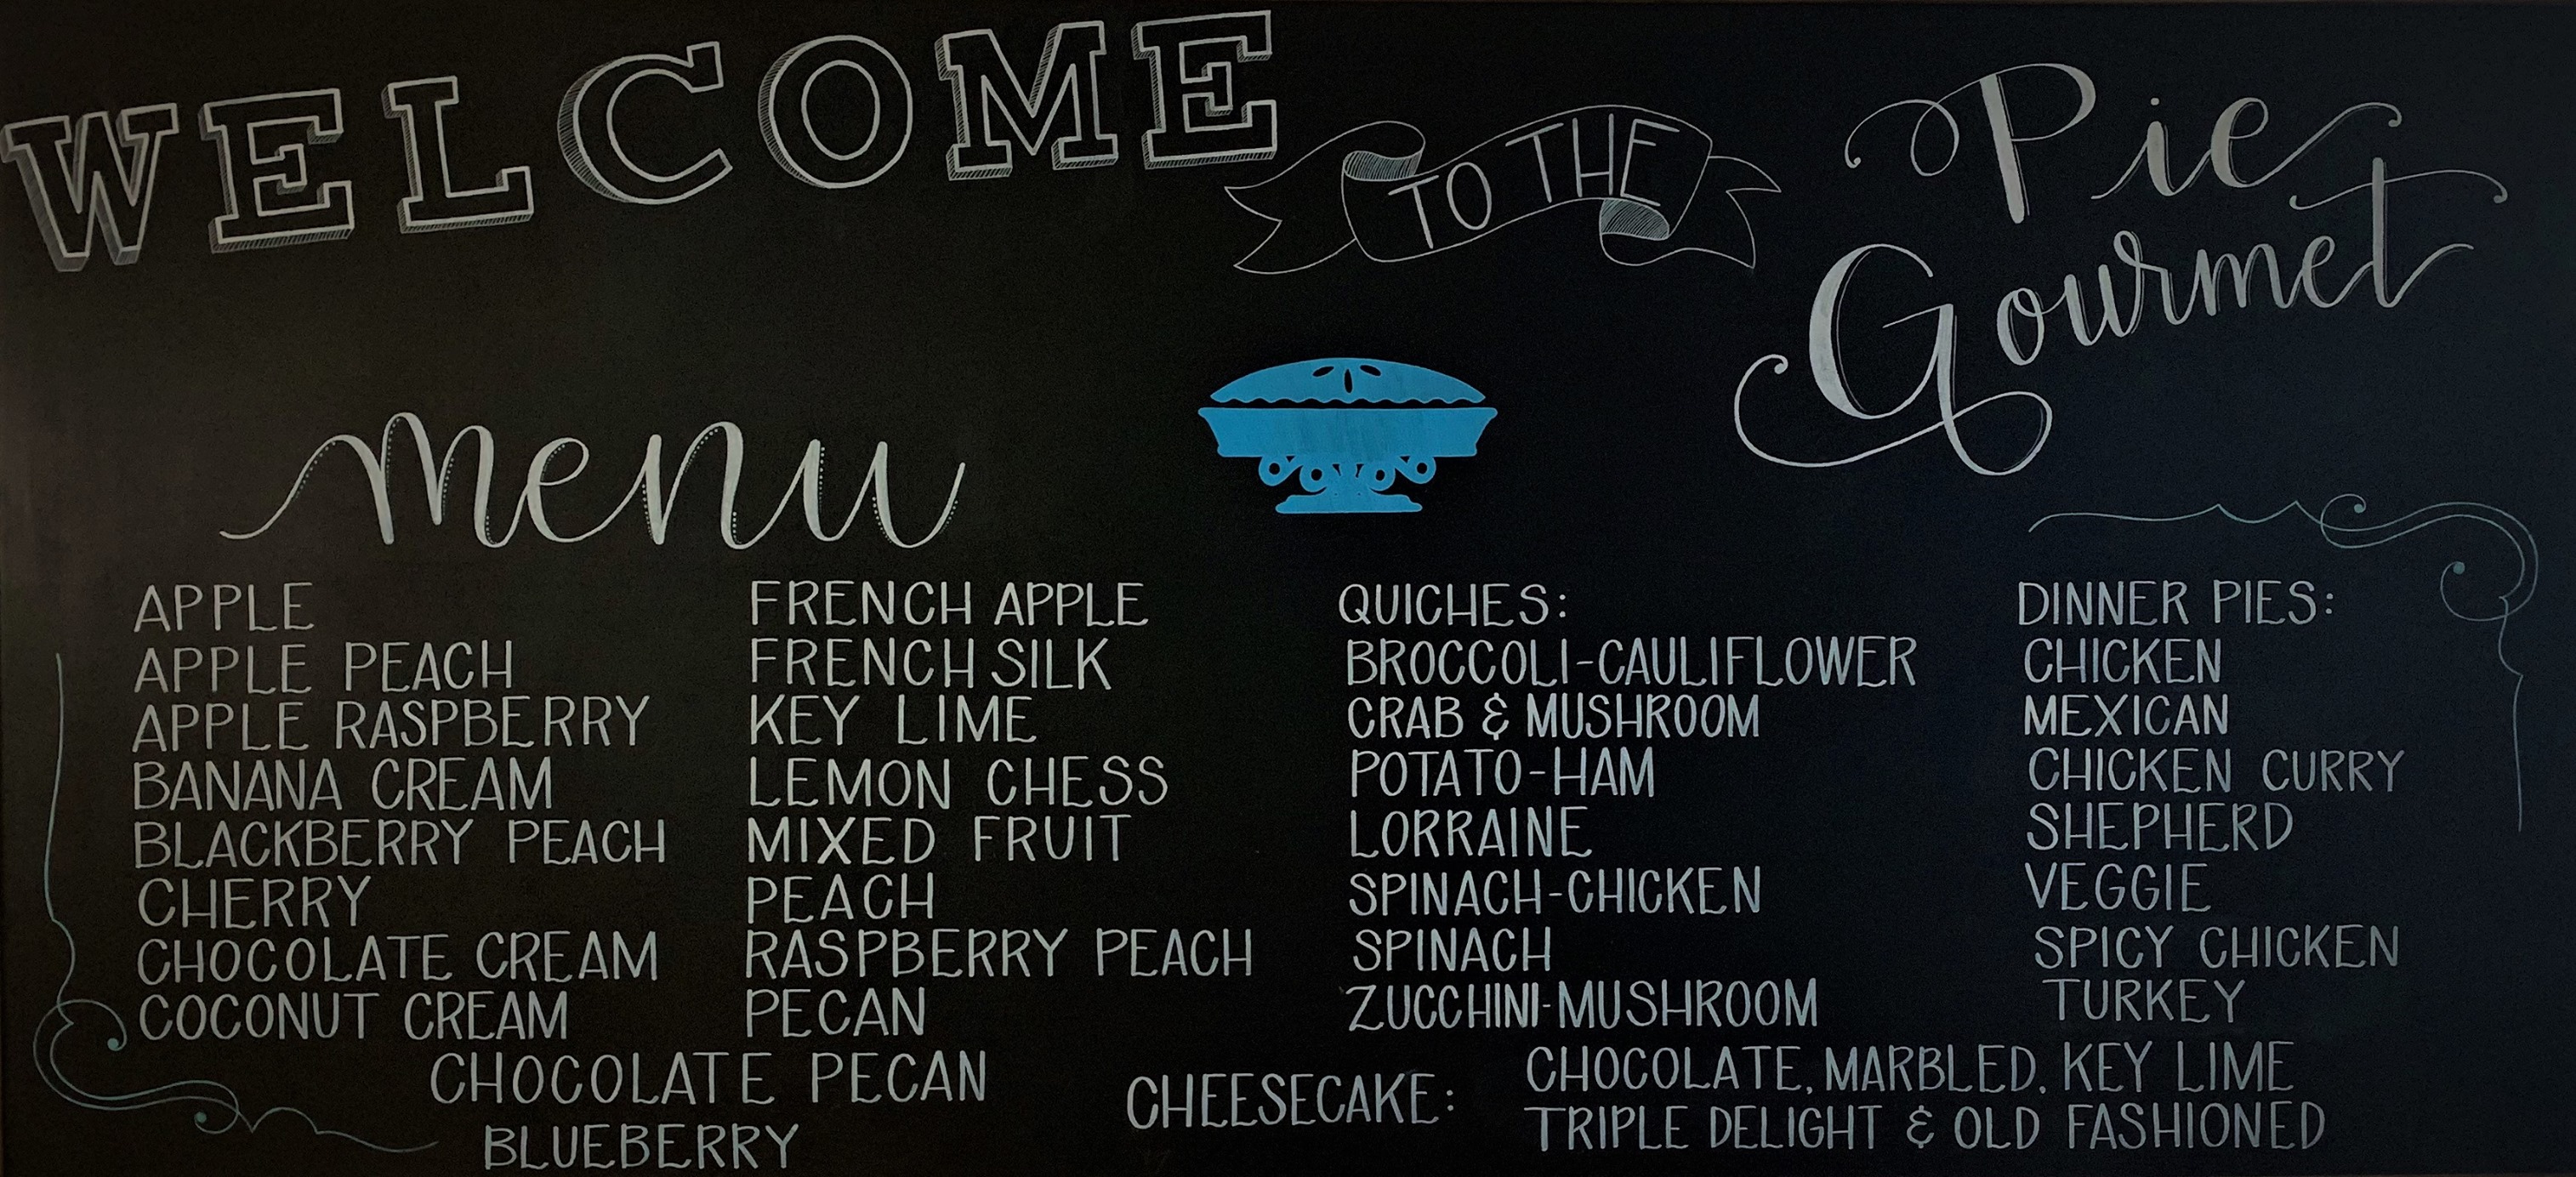 WELCOME
TO THE
Pie
Gourmet
menu
APPLE
APPLE PEACH
APPLE RASPBERRY
BANANA CREAM
BLACKBERRY PEACH
CHERRY
CHOCOLATE CREAM
COCONUT CREAM
FRENCH APPLE
FRENCH SILK
KEY LIME
LEMON CHESS
MIXED FRUIT
PEACH
RASPBERRY PEACH
PECAN
CHOCOLATE PECAN
BLUEBERRY
QUICHES:
BROCCOLI-CAULIFLOWER
CRAB & MUSHROOM
POTATO-HAM
LORRAINE
SPINACH-CHICKEN
SPINACH
ZUCCHINI-MUSHROOM
DINNER PIES:
CHICKEN
MEXICAN
CHICKEN CURRY
SHEPHERD
VEGGIE
SPICY CHICKEN
TURKEY
CHEESECAKE:
CHOCOLATE, MARBLED, KEY LIME
TRIPLE DELIGHT & OLD FASHIONED